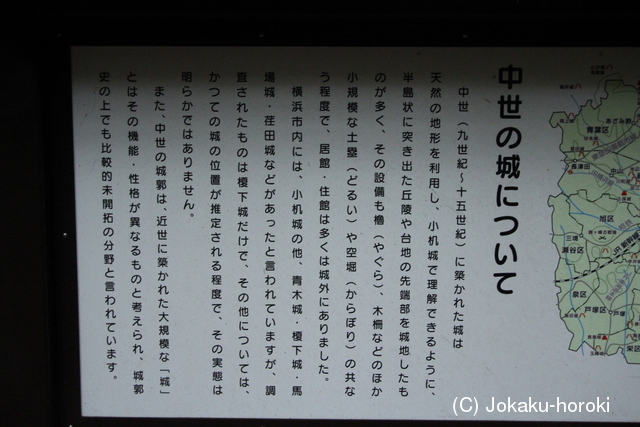 中世の城について
中世（九世紀～十五世紀）に築かれた城は
天然の地形を利用し、小机城で理解できるように、
半島状に突き出た丘陵や台地の先端部を城地したも
のが多く、その設備も櫓（やぐら）、木柵などのほか
小規模な土塁（どるい）や空堀（からぼり）の共な
う程度で、居館・住館は多くは城外にありました。
横浜市内には、小机城の他、青木城・榎下城・馬
場城・荏田城などがあったと言われていますが、調
査されたものは榎下城だけで、その他については、
かつての城の位置が推定される程度で、その実態は
明らかではありません。
また、中世の城郭は、近世に築かれた大規模な「城」
とはその機能・性格が異なるものと考えられ、城郭
史の上でも比較的未開拓の分野と言われています。
青葉区
あざみ野
長津田
中山
旭区
三境
瀬谷区
泉区
戸塚区
戸塚
栄区
(C) Jokaku-horoki